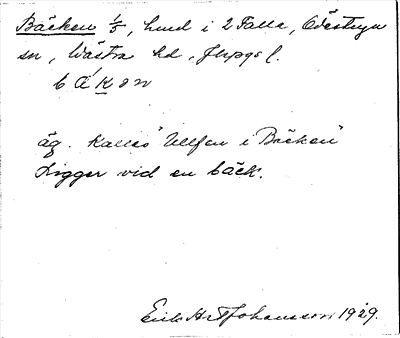 Bäcken 1/3, hmd i 2 Falla, Ödestugu
sn, Västra hd, Jkpgs l.
bäkən
äg. kallas "Ulfen i Bäcken"
Ligger vid en bäck.
Erik Johansson 1929.